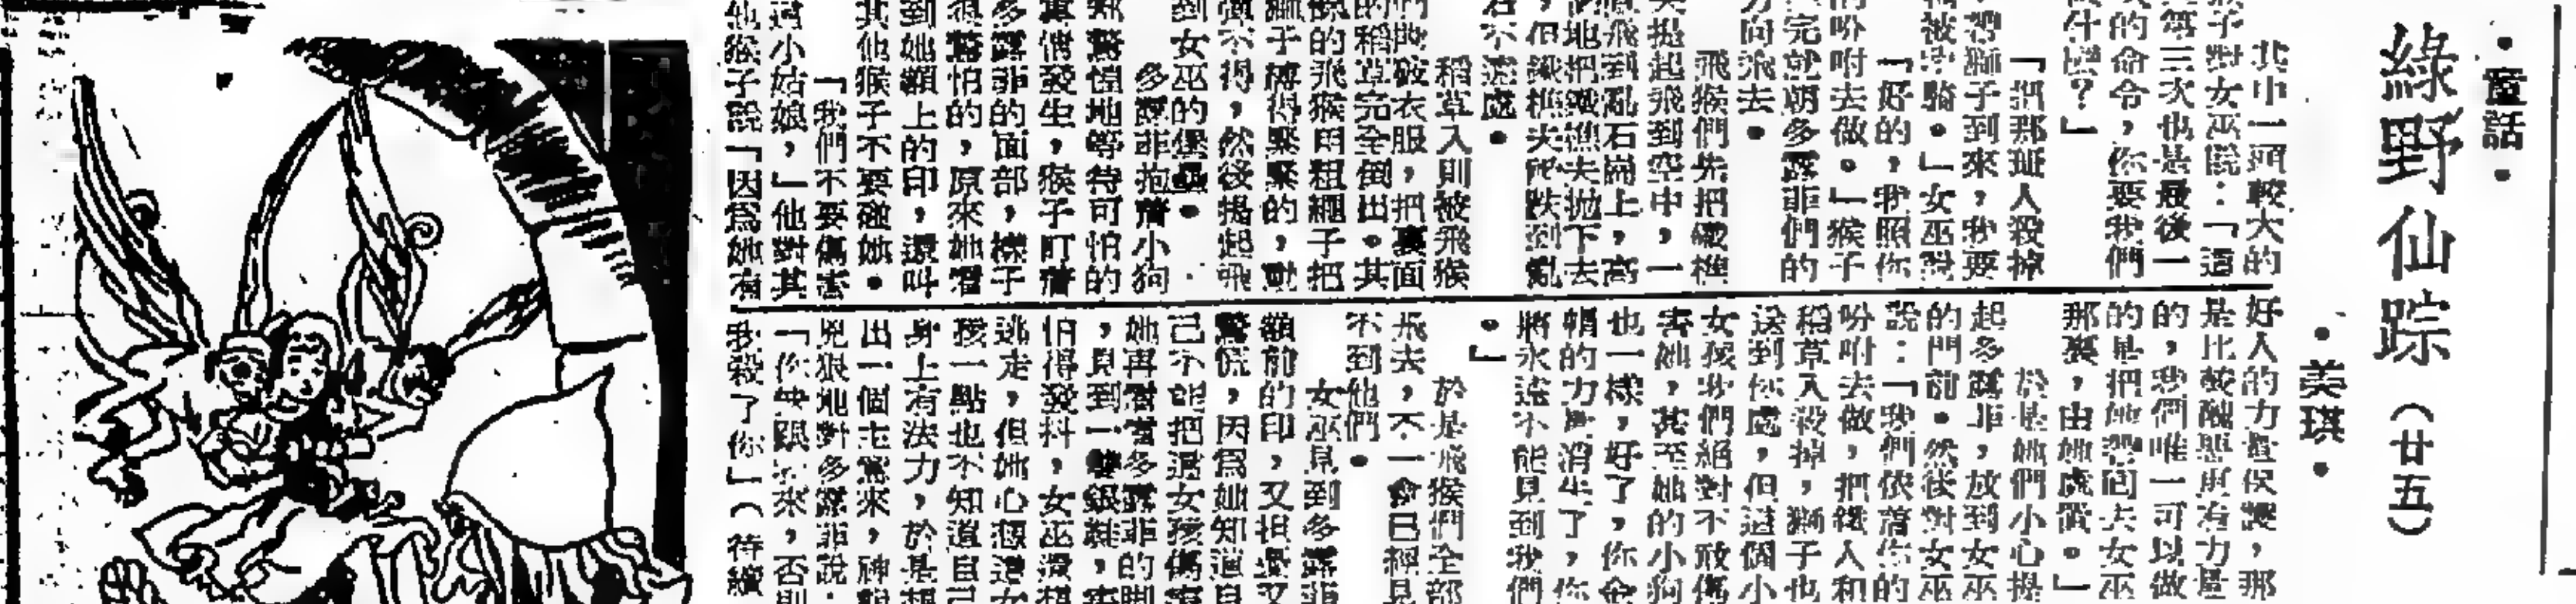 •童話•
綠野仙踪（廿五）
•美琪•
其中一頭較大的
子對女巫說：「這
第三次也是最後一
的命令，你要我們
什麼？」
「把那班人殺掉
帶獅子到來，我要
被騎。」女巫說
「好的，我照你
吩咐去做。」猴子
完就朝多露菲們的
方向飛去。
飛猴們先把鐵樵
夫提起飛到空中，一
飛到亂石崗上，高
地把鐵樵夫拋下去
但鐵樵夫跌到亂
石不遠處。
稻草人則被飛猴
們撕破衣服，把裏面
的稻草完全倒出。其
餘的飛猴用粗繩子把
獅子縛得緊緊的，動
彈不得，然後揭起飛
到女巫的堡壘。
多露菲抱着小狗
驚惶地等待可怕的
事情發生，猴子盯着
多露菲的面部，樣子
很驚怕的，原來她看
到她額上的印，還叫
其他猴子不要碰她。
「我們不要傷害
這小姑娘，」他對其
他猴子說「因爲她有
好人的力量保護，那
是比較醜惡更有力量
的，我們唯一可以做
的是把她帶回去女巫
那裏，由她處置。」
於是她們小心提
起多露菲，放到女巫
的門前。然後對女巫
說：「我們依着你的
吩咐去做，把鐵人和
稻草人殺掉，獅子也
送到你處，但這個小
女孩我們絕對不敢傷
害她，甚至她的小狗
也一樣，好了，你會
帽的力量消失了，你
將永遠不能見到我們
。」
於是飛猴們全部
飛去，不一會已經見
不到他們。
女巫見到多露菲
額前的印，又担憂又
驚慌，因爲她知道自
己不能把這女孩傷害
她再看看多露菲的脚
，見到一雙銀鞋，害
怕得發抖，女巫還想
逃走，但她心想這女
孩一點也不知道自己
身上有法力，於是想
出一個主意來，神情
兇狠地對多露菲說：
「你快跟我來，否則
我殺了你」（待續